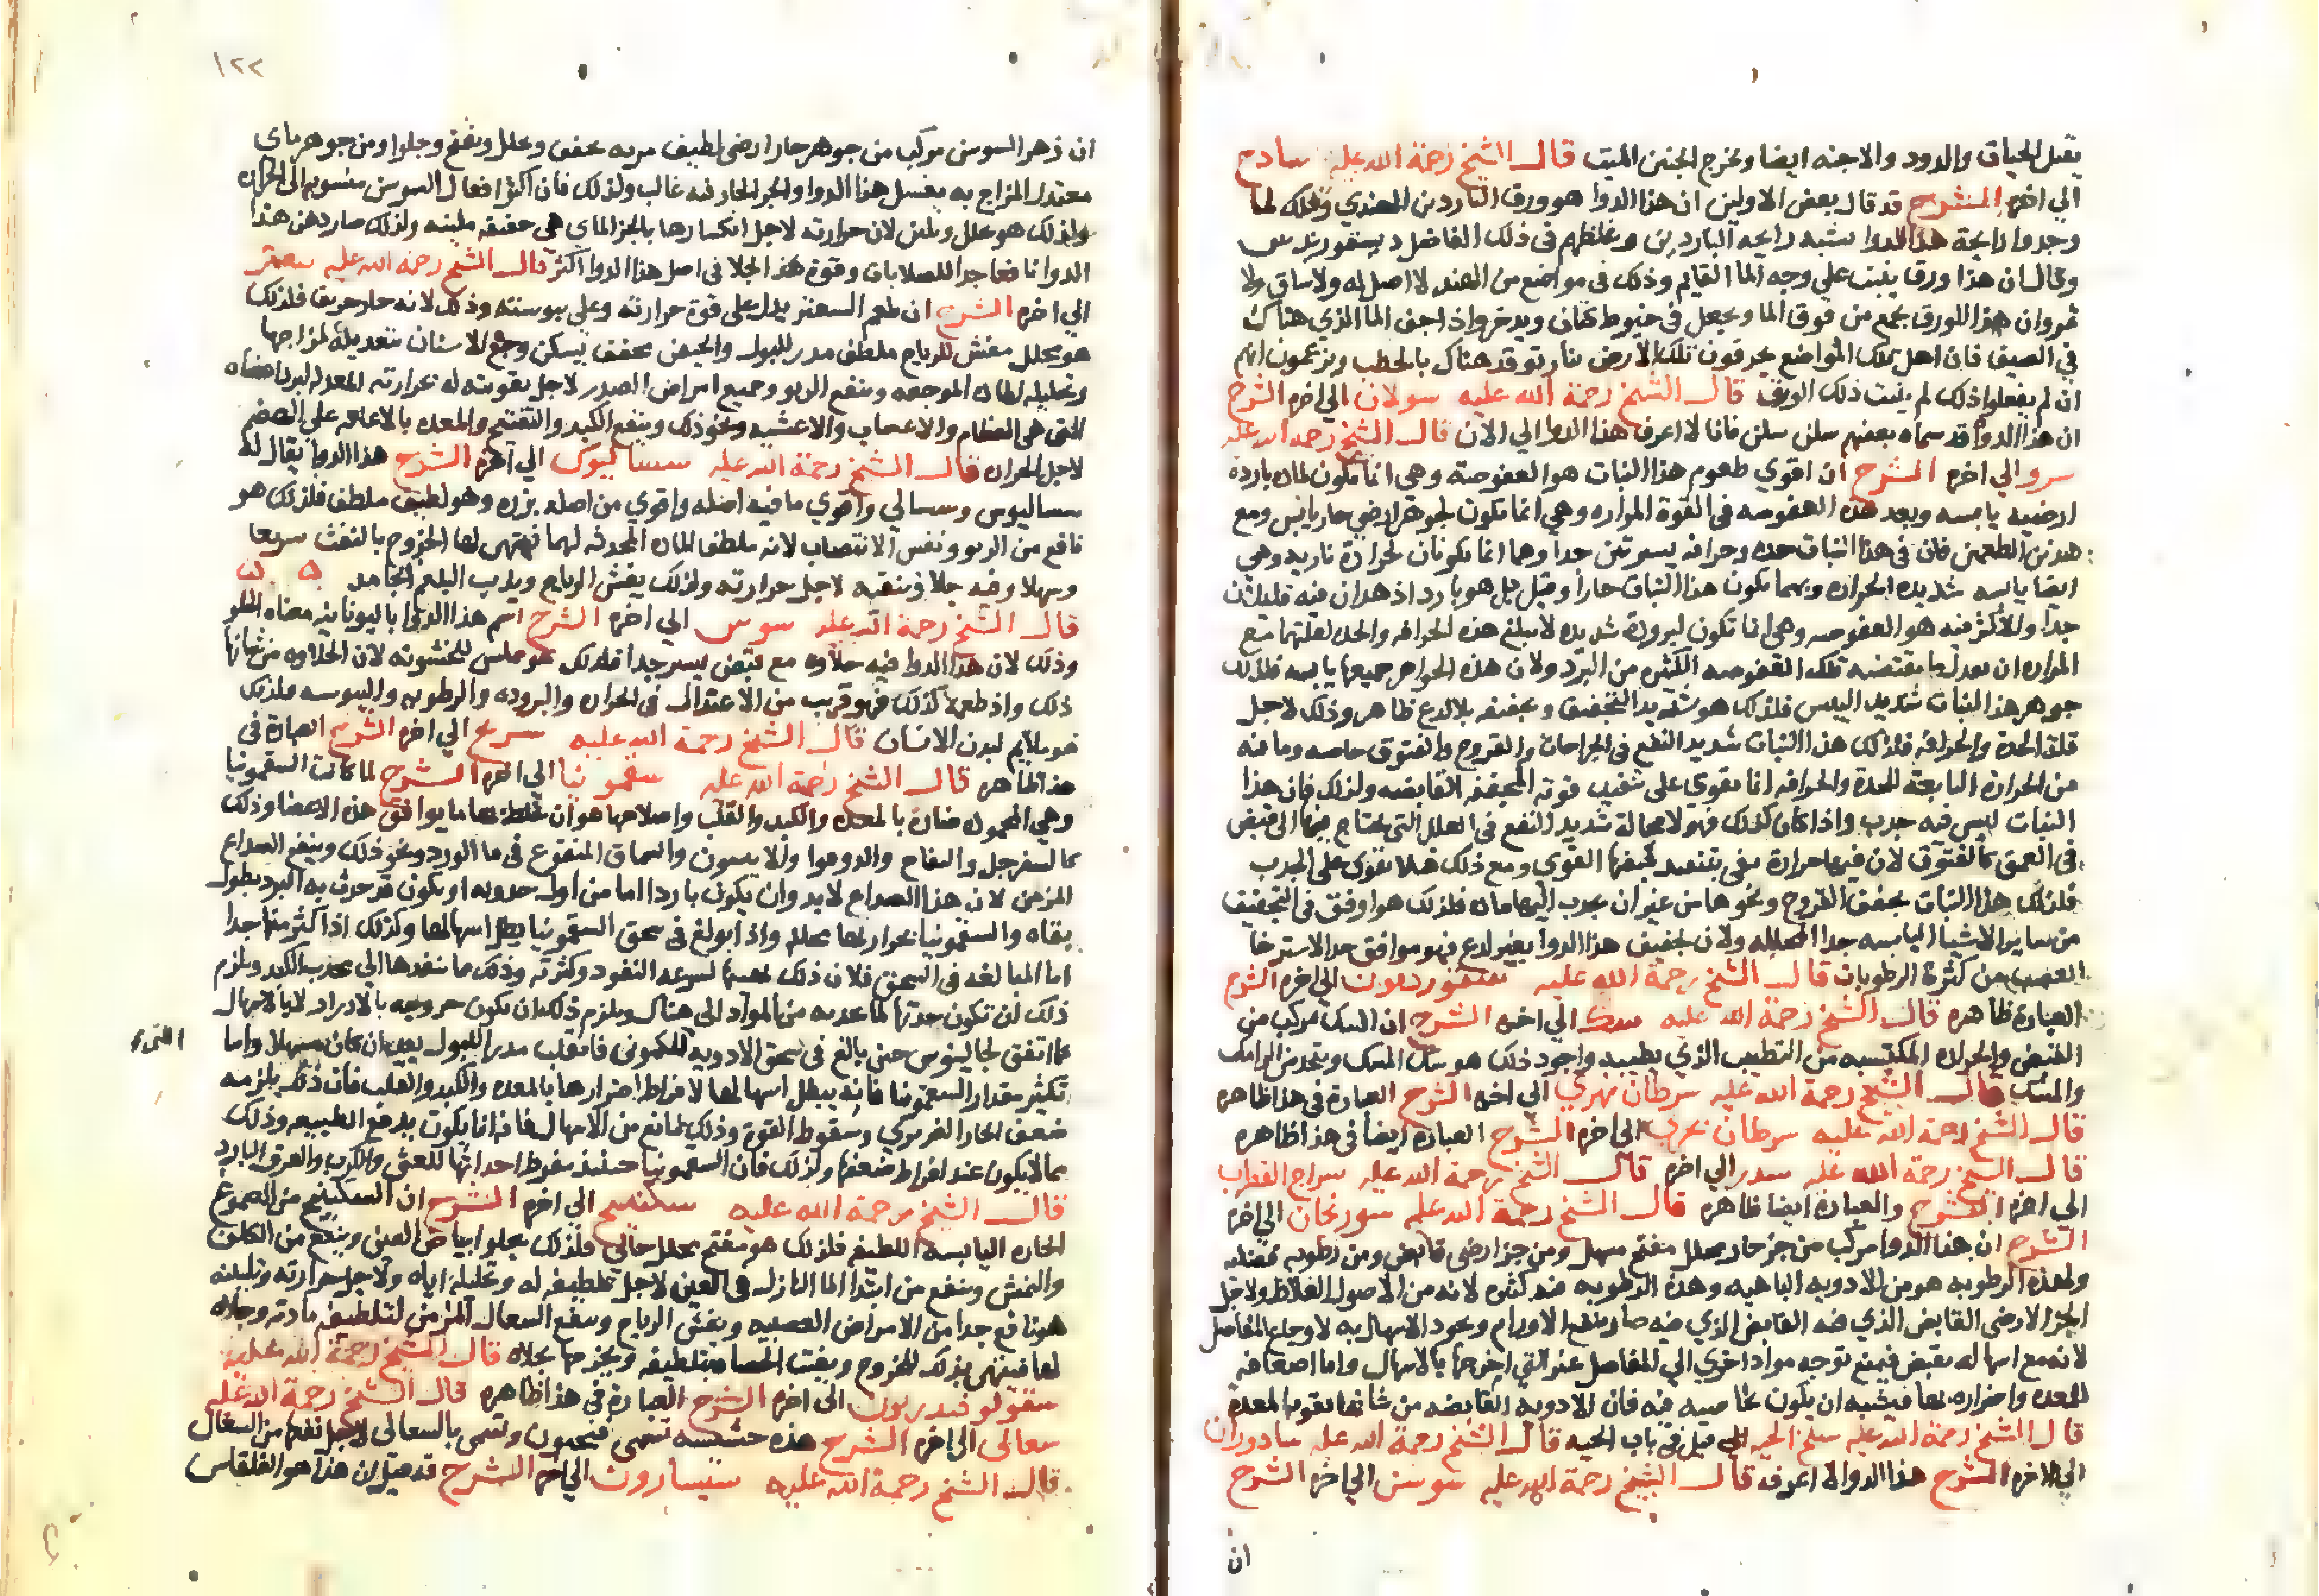 يقتل الحيات والدود والاجنه ايضا ويخرج الجنين الميت قال الشيخ رحمة الله عليه سادج
الي اخره الشرح قد قال بعض الاولين ان هذا الدوا هو ورق الناردين الهندي وذلك لما
وجدوا رايحة هذا الدوا شبه رايحه الناردين وغلطهم في ذلك الفاضل ديسقوريدس
وقال ان هذا ورق ينبت علي وجه الما القايم وذلك في مواضع من الهند لا اصل له ولا ساق ولا
ثمر وان هذا الورق يجمع من فوق الما ويجعل في خيوط كتان ويدخر واذا جف الما الذي هناك
في الصيف فان اهل تلك المواضع يحرقون تلك الارض بنار توقد هناك بالحطب ويزعمون انهم
ان لم يفعلوا ذلك لم ينبت ذلك الورق قال الشيخ رحمة الله عليه سولان الي اخره الشرح
ان هذا الدوا قد سماه بعضهم سلن سلن فانا لا اعرف هذا الدوا الي الان قال الشيخ رحمه الله عليه
سرو الي اخره الشرح ان اقوي طعوم هذا النبات هو العفوصة وهي انما تكون لماده بارده
ارضيه يابسه وبعد هذه العفوصه في القوة المراره وهي انما تكون لجوهر ارضي حار يابس ومع
هذين الطعمين فان في هذا النبات حده وحرافه يسيرتين جدا وهما انما يكونان لحرارة ناريه وهي
ايضا يابسه شديده الحراره وبهما يكون هذا النبات حارا وقيل بل هو بارد اذ هذان فيه قليلان
جدا والاكثر فيه هو العفوصه وهي انما تكون لبرودة شديده لا يبلغ هذه الحرافه والحده لقلتهما مع
المراره ان يعدل ما يقتضيه تلك العفوصه الكثيره من البرد ولان هذه الجواهر جميعها يابسه فلذلك
جوهر هذا النبات شديد اليبس فلذلك هو شديد التجفيف وتجفيفه بلا لدع ظاهر وذلك لاجل
قلة الحدة والحرافه فلذلك هذا النبات شديد النفع في الجراحات والقروح والفتوق خاصه وما فيه
من الحرارة التابعة للحدة والحرافه انما تقوي علي تنفيذ قوته المجففه القابضه ولذلك فان هذا
النبات ليس فيه جدب واذا كان كذلك فهو لا محالة شديد النفع في العلل التي يحتاج فيها الي قبض
في العمق كالفتوق لان فيها حرارة تفي بتنفيد تجفيفها القوي ومع ذلك فلا تقوي علي الجدب
فلذلك هذا النبات يجفف القروح ونحوها من غير ان يجدب اليها ماده فلذلك هو اوفق في التجفيف
من ساير الاشيا اليابسه جدا المحلله ولان تجفيف هذا الدوا بغير لدع فهو موافق جدا لاسترخا
العصب من كثرة الرطوبات قال الشيخ رحمة الله عليه سقنوردیون الي اخره الشرح
العبارة ظاهره قال الشيخ رحمة الله عليه سك الي اخره الشرح ان السك مركب من
القبض والحراره المكتسبه من التطييب الذي يطيبه واجود ذلك هو سك المسك ويتخذ من الرامك
والمسك قال الشيخ رحمة الله عليه سرطان نهري الي اخره الشرح العبارة في هذا ظاهره
قال الشيخ رحمة الله عليه سرطان بحري الي اخره الشرح العباره ايضا في هذا ظاهره
قال الشيخ رحمة الله عليه سدر الي اخره قال الشيخ رحمة الله عليه سراج القطرب
الي اخره الشرح والعبارة ايضا ظاهره قال الشيخ رحمة الله عليه سورنجان الي اخره
الشرح ان هذا الدوا مركب من جز حار محلل مفتح مسهل ومن جز ارضي قابض ومن رطوبه فضليه
ولهذه الرطوبه هو من الادويه الباهيه وهذه الرطوبه فيه كثيره لانه من الاصول الغلاظ ولاجل
الجز الارضي القابض الذي فيه القابض الذي فيه صار ينفع الاورام ويجود الاسهال به لاوجاع المفاصل
لانه مع اسهاله يقبض فيمنع توجه مواد اخري الي المفاصل عند التي اخرجها بالاسهال واما اضعافه
للمعده واضراره بها فيشبه ان يكون بخاصيه فيه فان الادويه القابضه من شانها تقويه المعدة
قال الشيخ رحمة الله عليه سلخ الحيه الي قيل في باب الحيه قال الشيخ رحمة الله عليه سادوران
الي الاخره الشرح هذا الدوا لا اعرفه قال الشيخ رحمة الله عليه سوسن الي اخره الشرح
ان
١٢٢
ان زهر السوسن مركب من جوهر حار ارضي لطيف مر به يجفف ويحلل ويفتح ويجلوا ومن جوهر ماي
معتدل المزاج به يغسل هذا الدوا والجز الحار فيه غالب ولذلك فان اكثر افعال السوسن منسوبه الي الحراره
ولذلك هو محلل وملين لان حرارته لاجل انكسارها بالجز الماي هي خفيفه ملينه ولذلك صار دهن هذا
الدوا نافعا جدا للصلابات وقوة هذا الجلا في اصل هذا الدوا اكثر قال الشيخ رحمة الله عليه سعتر
الي اخره الشرح ان طعم السعتر يدل علي قوة حرارته وعلي يبوسته وذلك لانه حار حريف فلذلك
هو محلل مفش للرياح ملطف مدر للبول والحيض مجفف يسكن وجع الاسنان بتعديله لمزاجها
وتحليله لماده الموجعه وينفع الربو وجميع امراض الصدر لاجل تقويته له بحرارته المعدله لبرد اعضاه
التي هي العظام والاعصاب والاغشيه ونحو ذلك وينفع الكبد والتفتيح والمعده بالاعانه علي الهضم
لاجل الحراره قال الشيخ رحمة الله عليه سساليوس الي اخره الشرح هذا الدوا يقال له
سساليوس وسسالي واقوي ما فيه اصله واقوي من اصله بزره وهو لطيف ملطف فلذلك هو
نافع من الربو ونفس الانتصاب لانه ملطف للماده المحدثه لهما فيتهيى لها الخروج بالنفث سريعا
وسهلا وفيه جلا وتنقيه لاجل حرارته ولذلك يفش الرياح ويذيب البلغم الجامد
قال الشيخ رحمة الله عليه سوس الي اخره الشرح اسم هذا الدوا باليونانيه معناه الحلو
وذلك لان هذا الدوا فيه حلاوه مع قبض يسير جدا فلذلك هو مملس للخشونه لان الحلاوه من شانها
ذلك واذ طعمه كذلك فهو قريب من الاعتدال في الحراره والبروده والرطوبه واليبوسه فلذلك
هو ملايم لبدن الانسان قال الشيخ رحمة الله عليه سرح الي اخره الشرح العبارة في
هذا ظاهره قال الشيخ رحمة الله عليه سقمونيا الي اخره الشرح لما كانت السقمونيا
وهي المحموده ضارة بالمعده والكبد والقلب واصلاحها هو ان يخلط بها ما يوافق هذه الاعضا وذلك
كالسفرجل والتفاح والدوقوا والانيسون والسماق المنقوع في ما الورد ونحو ذلك وينفع الصداع
المزمن لان هذا الصداع لا بد وان يكون باردا اما من اول حدوثه او يكون قد حدث به البرد بطول
بقاه والسقمونيا بحرارتها محلله واذا بولغ في سحق السقمونيا بطل اسهالها وكذلك اذا كثر منها جدا
اما المبالغه في السحق فلان ذلك يعينها لسرعه النفود وكثرته وذلك ما ينفدها الي محدب الكبد ويلزم
ذلك ان تكون حدتها لما تجدبه من المواد الي هناك ويلزم ذلك ان يكون خروجه بالادرار لا بالاسهال
كما اتفق لجالينوس حين بالغ في سحق الادويه للكموني فانقلب مدرا للبول بعد ان كان مسهلا واما
تكثير مقدار السقمونيا فانه يبطل اسهالها لافراط اضرارها بالمعده والكبد والقلب فان ذلك يلزمه
ضعف الحار الغريزي وسقوط القوة وذلك مانع من الاسهال فانه انما يكون بدفع الطبيعه وذلك
مما لا يكون عند افراط ضعفها ولذلك فان السقمونيا حينيذ يفرط احداثها للغشي والكرب والعرق البارد
قال الشيخ رحمة الله عليه سكبينج الي اخره الشرح ان السكبينج من الصموغ
الحاره اليابسه اللطيفه فلذلك هو مفتح محلل جالي فلذلك يجلوا بياض العين وينفع من الكلف
والنمش وينفع من ابتدا الما النازل في العين لاجل تلطيفه له وتحليله اياه ولاجل حرارته وتليينه
هو نافع جدا من الامراض العصبيه ويفش الرياح وينفع السعال المزمن لتلطيفه مادته وجلايه
لها فيتهيى بذلك للخروج ويفتت الحصا بتلطيفه ويخرجها بجلاه قال الشيخ رحمة الله عليه
سقولوقندريون الي اخره الشرح العبارة في هذا ظاهره قال الشيخ رحمة الله عليه
سعالي الي اخره الشرح هذه حشيشه تسمي فيحيون وتسمي بالسعالي لاجل نفعها من السعال
قال الشيخ رحمة الله عليه سيسارون الي اخره الشرح قد قيل ان هذا هو القلقاس